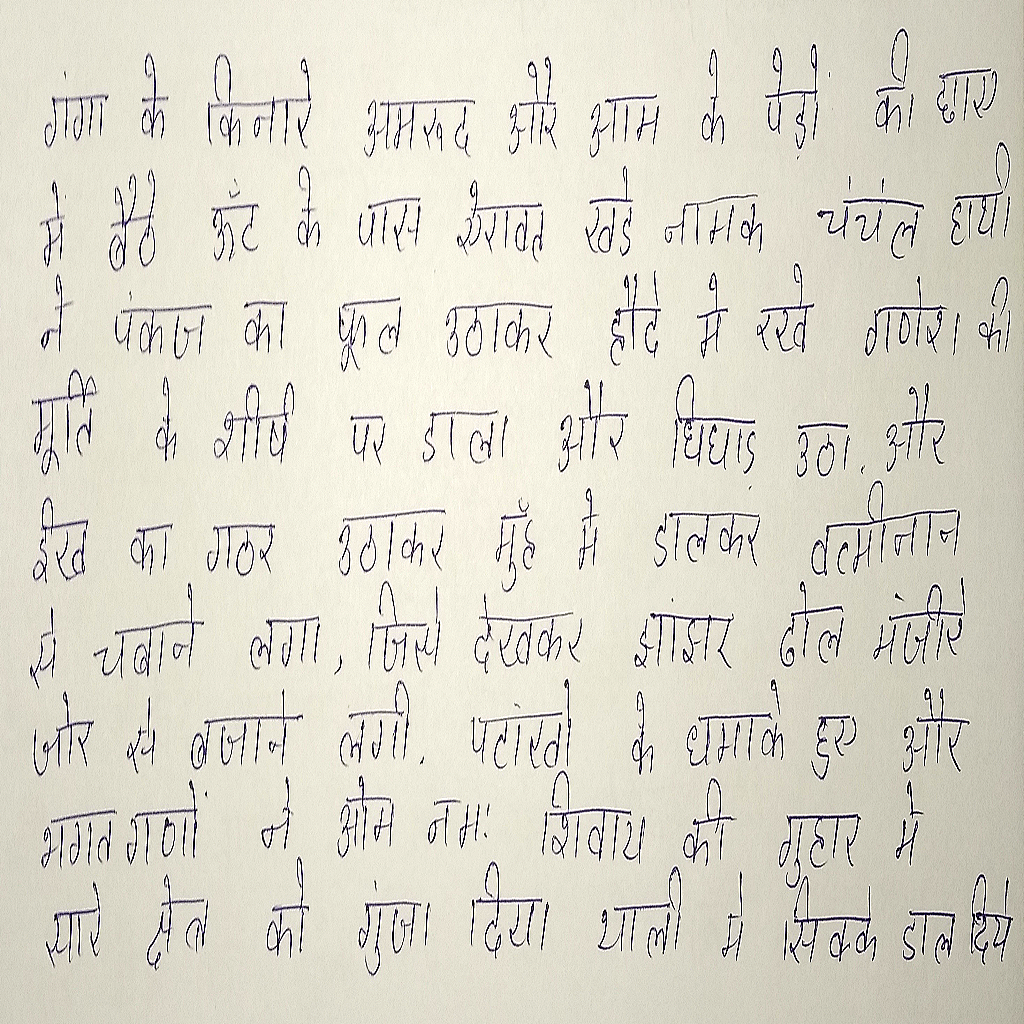 गंगा के किनारे अमरूद और आम के पेड़ों की छाए
मे बैठे ऊँट के पास ऐरावत खडे नामक चंचंल हाथी
ने पंकज का फूल उठाकर हौदे मे रखे गणेश की
मूर्ति के शीर्ष पर डाला और चिंघाड़ उठा. और
ईख का गठर उठाकर मुँह मे डालकर
से चबाने लगा, जिसे देखकर झांझर ढोल मंजीरे
जोर से बजाने लगी. के धमाके हुए और
भगतगणों ने ओम नमः शिवाय की गुहार मे
सारे को गुंजा दिया थाली मे सिक्के डाल दिये